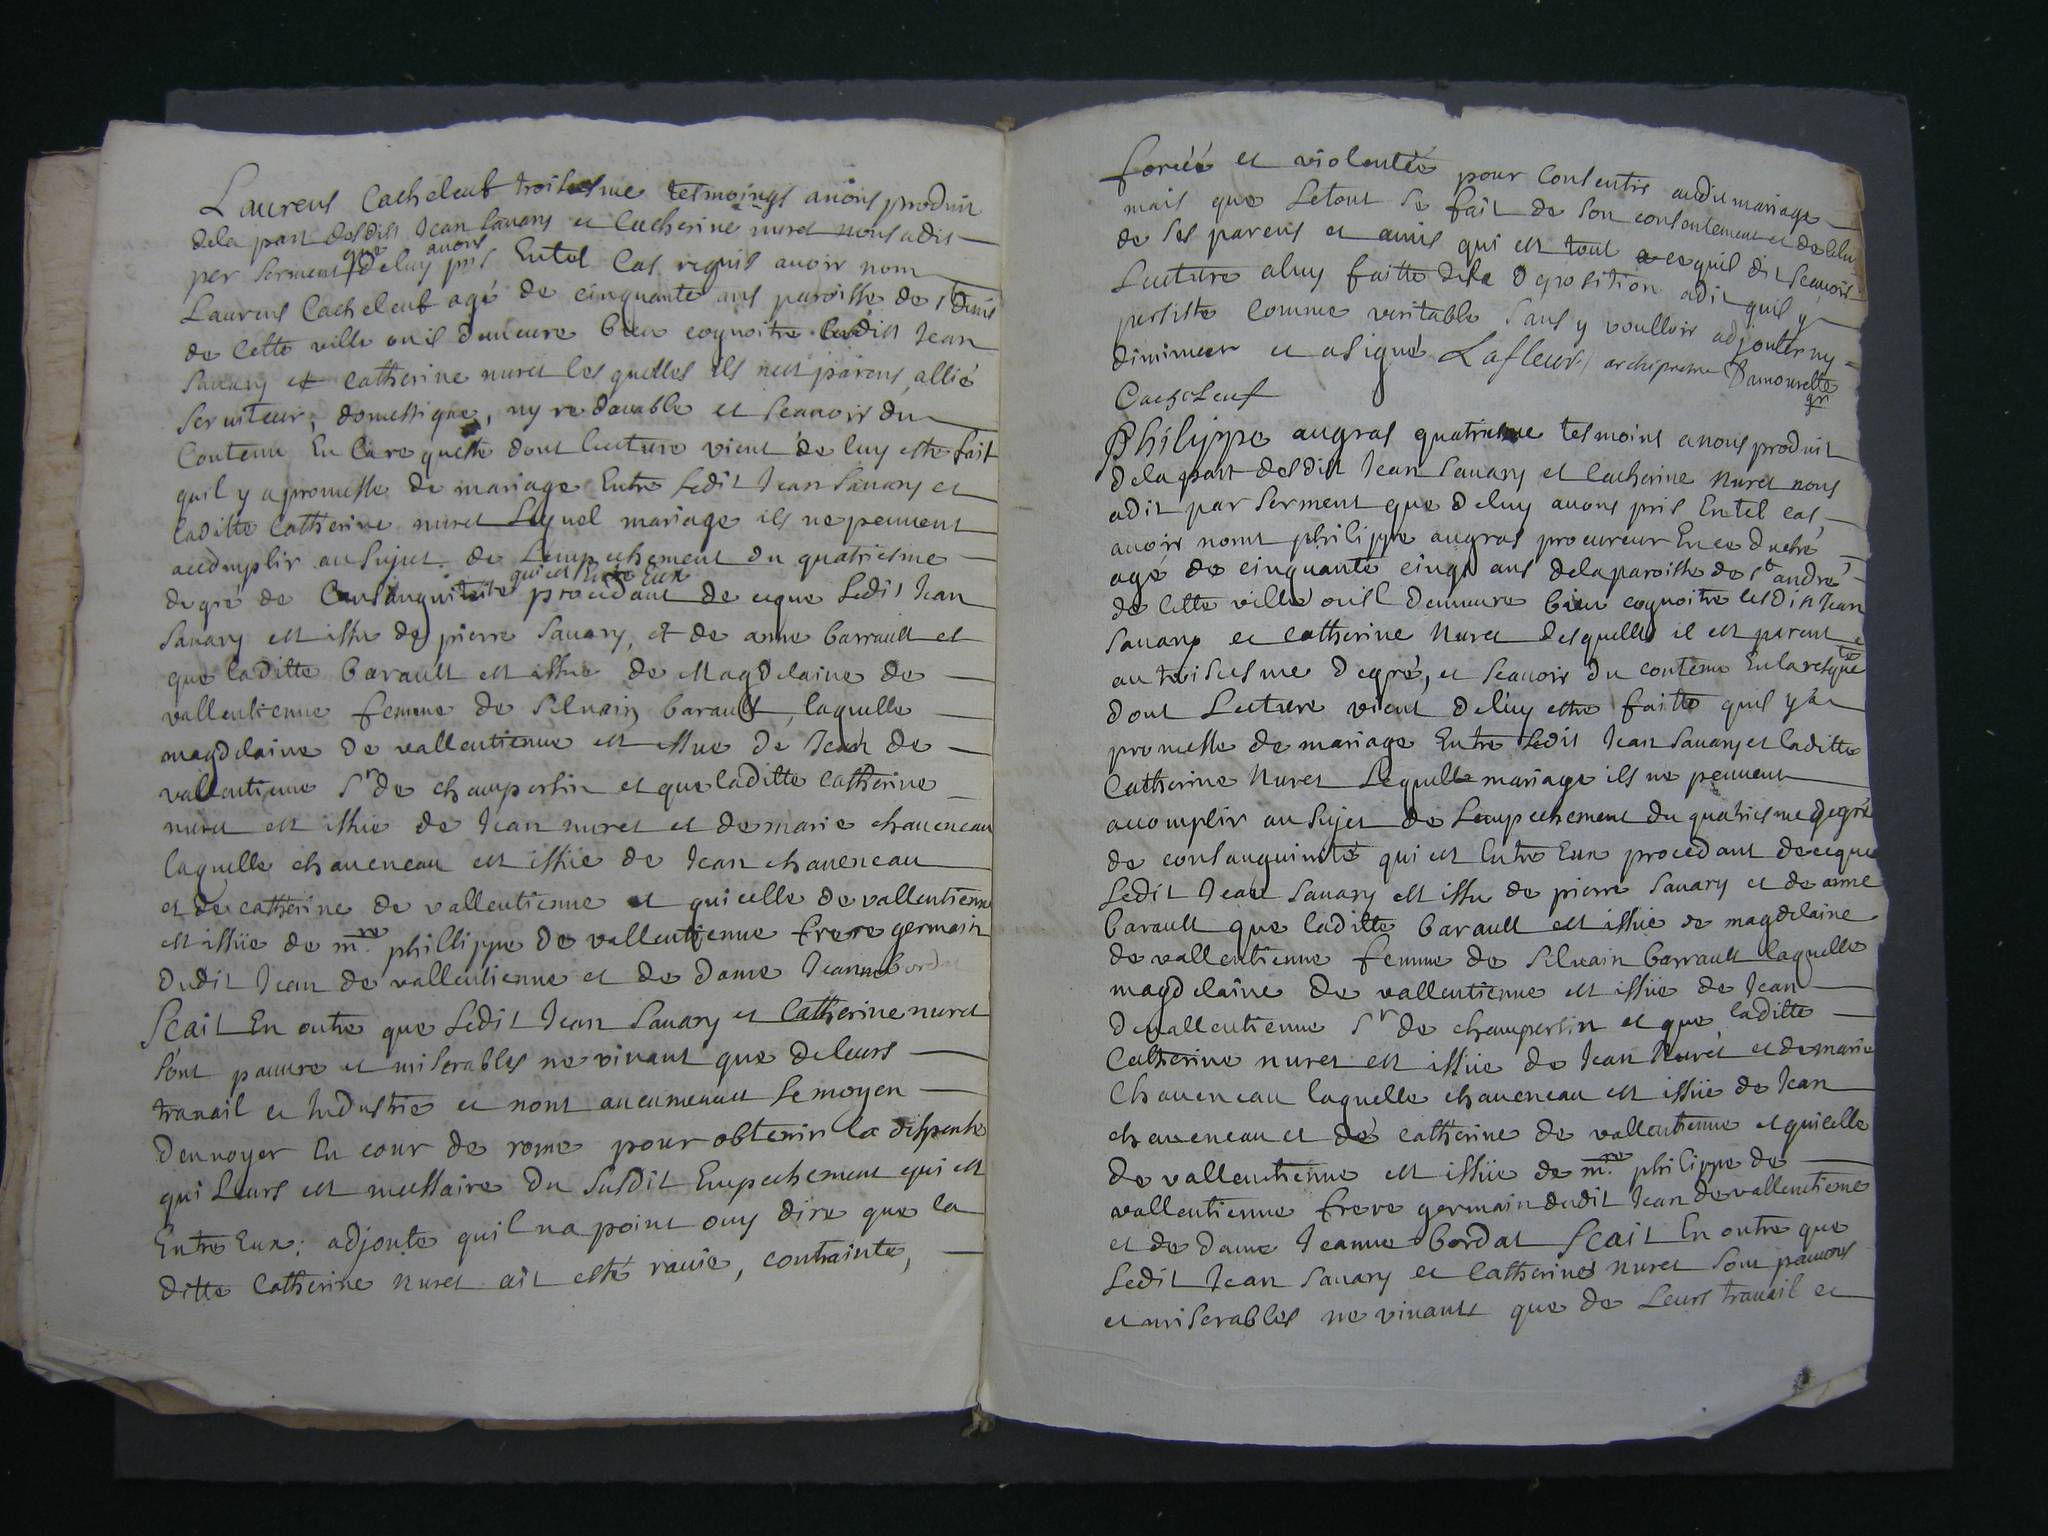 Laurens Cacheleuf troisiesme tesmoings anous produit
dela part desdits Jean Sauary et Catherine nuret nous adit
par serment que deluy auons pris Entel Cas requis auoir nom
Laurens Cacheleuf agé de cinquante ans paroisse de st Denis
de Cette ville ouil demeure bien cognoitre lesdits Jean
Sauary et Catherine nuret les quelles ils nest parens, allié
seruiteur, domestique, ny redeuable et scauoir du
Contenu En lare queste dont lecture vient de luy estre fait
quil y apromesse de mariage Entre Ledit Jean Sauary et
laditte Catherine nuret Lequel mariage ils ne peuuent
accomplir au sujet de Lempeschement du quatriesme
degré de Consanguinité qui est Entre Eux procedant de ceque Ledit Jean
Sauary est issu de pierre Sauary, et de anne barrault et
que laditte barault est issue de Magdelaine de
vallentienne femme de Siluain barault, laquelle
magdelaine de vallentienne est issue de Jean de
vallentienne Sr de champerlin et que laditte Catherine
nuret est issüe de Jean nuret et de marie chaueneau
laquelle chaueneau est issüe de Jean chaueneau
et de catherine de vallentienne et quicelle de vallentienne
est issüe de mre phillippe de vallentienne frere germain
dudit Jean de vallentienne et de dame Jeanne bordat
Scait En outre que Ledit Jean Sauary et Catherine nuret
sont pauure et miserables ne viuant que deleurs
trauail et Industrie et nont aucunement Le moyen
denuoyer En cour de rome pour obtenir la dispense
qui Leurs est nessaire du susdit Empeschement qui est
Entre Eux; adjoute quil na point ouy dire que la
ditte Catherine nuret ait esté rauie, contrainte,
forcée et violentée pour consentir audit mariage
mais que Letout se fait de son consentement et de celuy
de ses parens et amis qui est tout cequil dit scauoir
Lecture aluy faitte desa deposition adit quil y
persiste comme veritable sans y voulloir adjouter ny
diminuer et asigné Lafleur archiprestre Damourette
Cacheleuf gr
Philippe augras quatriesme tesmoins anous produit
dela part desdits Jean Sauary et Catherine nuret nous
adit par serment que deluy auons pris Entel cas,
auoir nom philippe augras procureur Ence duché
agé de cinquante cinq ans delaparoisse de st andré
de Cette ville ouil demeure bien cognoitre lesdits Jean
Sauary et Catherine Nuret desquelles il est parent
au troisiesme degré, et scauoir du contenu Enlaresqueste
dont Lecture vient deluy estre faitte quil y a
promesse de mariage Entre Ledit Jean Sauary et laditte
Catherine Nuret Lequelle mariage ils ne peuuent
accomplir au sujet de Lempeschement du quatriesme degré
de consanguinité qui est Entre Eux procedant deceque
Ledit Jean Sauary est issu de pierre Sauary et de anne
barault que laditte barault est issüe de magdelaine
de vallentienne femme de Siluain barrault laquelle
magdelaine de vallentienne est issüe de Jean
deuallentienne Sr de champerlin et que laditte
Catherine nuret est issüe de Jean Nuret et de marie
Chaueneau laquelle chaueneau est issüe de Jean
chaueneau et de catherine de vallentienne et quicelle
de vallentienne est issüe de mre philippe de
vallentienne frere germain dudit Jean de vallentiene
et de dame Jeanne bordat Scait En outre que
Ledit Jean Sauary et Catherine nuret sont pauures
et miserables ne viuants que de Leurs trauail et